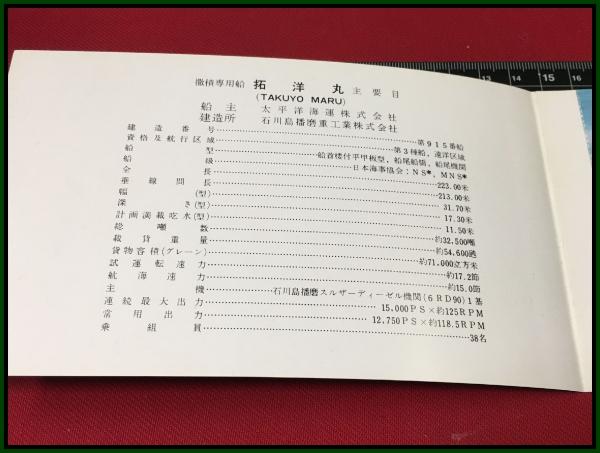 撒積専用船 拓洋丸 主要目
(TAKUYO MARU)
船主 太平洋海運株式会社
建造所 石川島播磨重工業株式会社
建造番号 第915番船
資格及航行区域 第3種船, 遠洋区域
船型 船首楼付平甲板型, 船尾船橋, 船尾機関
船級 日本海事協会:NS*, MNS*
全長 223.00米
垂線間長 213.00米
幅(型) 31.70米
深さ(型) 17.30米
計画満載吃水(型) 11.50米
総噸数 約32,500噸
載貨重量 約54,600
貨物容積(グレーン) 約71,000立方米
試運転速力 約17.2節
航海速力 約15.0節
主機 石川島播磨スルザーディーゼル機関(6RD90)1基
連続最大出力 15,000PS×約125RPM
常用出力 12,750PS×約118.5RPM
乗組員 38名
11 12 13 14 15 16